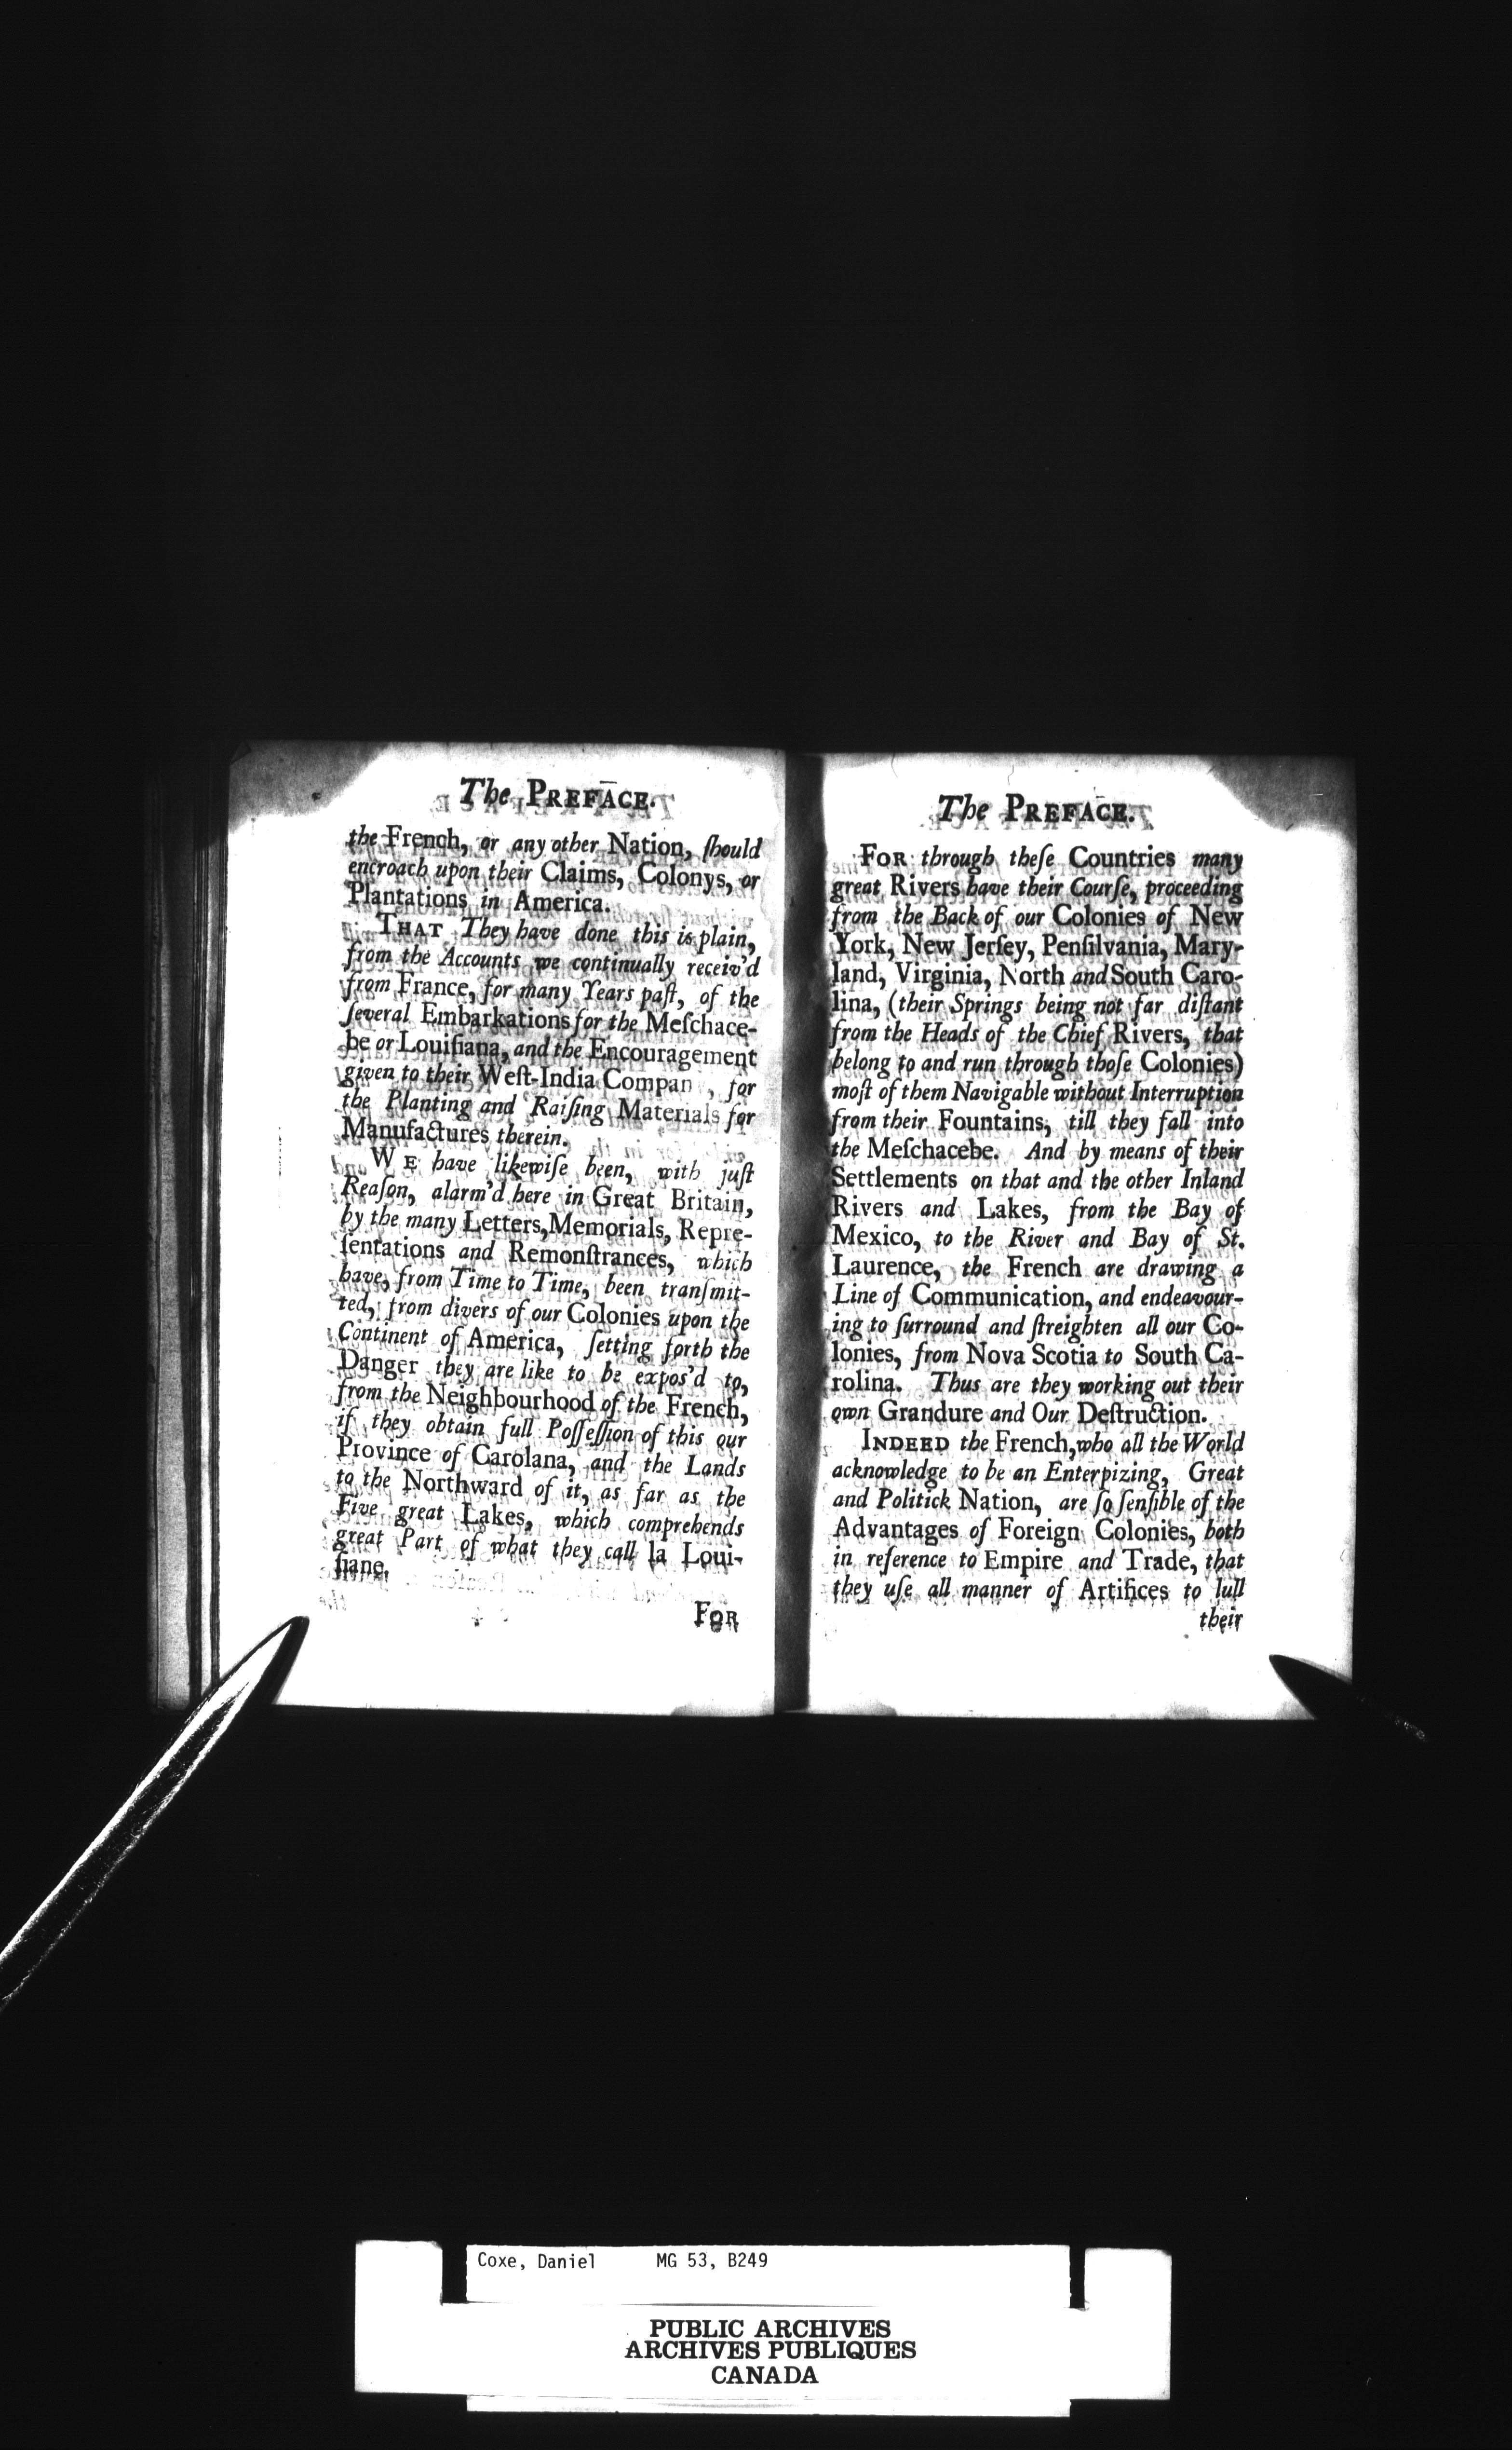 The PREFACE.
the French, or any other Nation, ſhould
encroach upon their Claims, Colonys, or
Plantations in America.
THAT They have done this is plain,
from the Accounts we continually receiv'd
from France, for many Years paſt, of the
ſeveral Embarkations for the Meſchace-
be or Louiſiana, and the Encouragement
given to their Weſt-India Compan , for
the Planting and Raiſing Materials for
Manufactures therein.
WE have likewiſe been, with juſt
Reaſon, alarm'd here in Great Britain,
by the many Letters, Memorials, Repre-
ſentations and Remonſtrances, which
have, from Time to Time, been tranſmit-
ted, from divers of our Colonies upon the
Continent of America, ſetting forth the
Danger they are like to be expos'd to,
from the Neighbourhood of the French,
if they obtain full Poſſeſſion of this our
Province of Carolana, and the Lands
to the Northward of it, as far as the
Five great Lakes, which comprehends
great Part of what they call la Loui-
ſiane.
FOR
The PREFACE.
FOR through theſe Countries many
great Rivers have their Courſe, proceeding
from the Back of our Colonies of New
York, New Jerſey, Penſilvania, Mary-
land, Virginia, North and South Caro-
lina, (their Springs being not far diſtant
from the Heads of the Chief Rivers, that
belong to and run through thoſe Colonies)
moſt of them Navigable without Interruption
from their Fountains, till they fall into
the Meſchacebe. And by means of their
Settlements on that and the other Inland
Rivers and Lakes, from the Bay of
Mexico, to the River and Bay of St.
Laurence, the French are drawing a
Line of Communication, and endeavour-
ing to ſurround and ſtreighten all our Co-
lonies, from Nova Scotia to South Ca-
rolina. Thus are they working out their
own Grandure and Our Deſtruction.
INDEED the French, who all the World
acknowledge to be an Enterpizing, Great
and Politick Nation, are ſo ſenſible of the
Advantages of Foreign Colonies, both
in reference to Empire and Trade, that
they uſe all manner of Artifices to lull
their
Coxe, Daniel MG 53, B249
PUBLIC ARCHIVES
ARCHIVES PUBLIQUES
CANADA